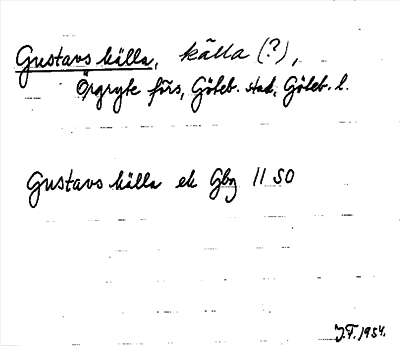 Gustavs källa, källa (?),
Örgryte förs, Göteb. stad, Göteb. l.
Gustavs källa ek Gbg 11 SO
J.F. 1954.